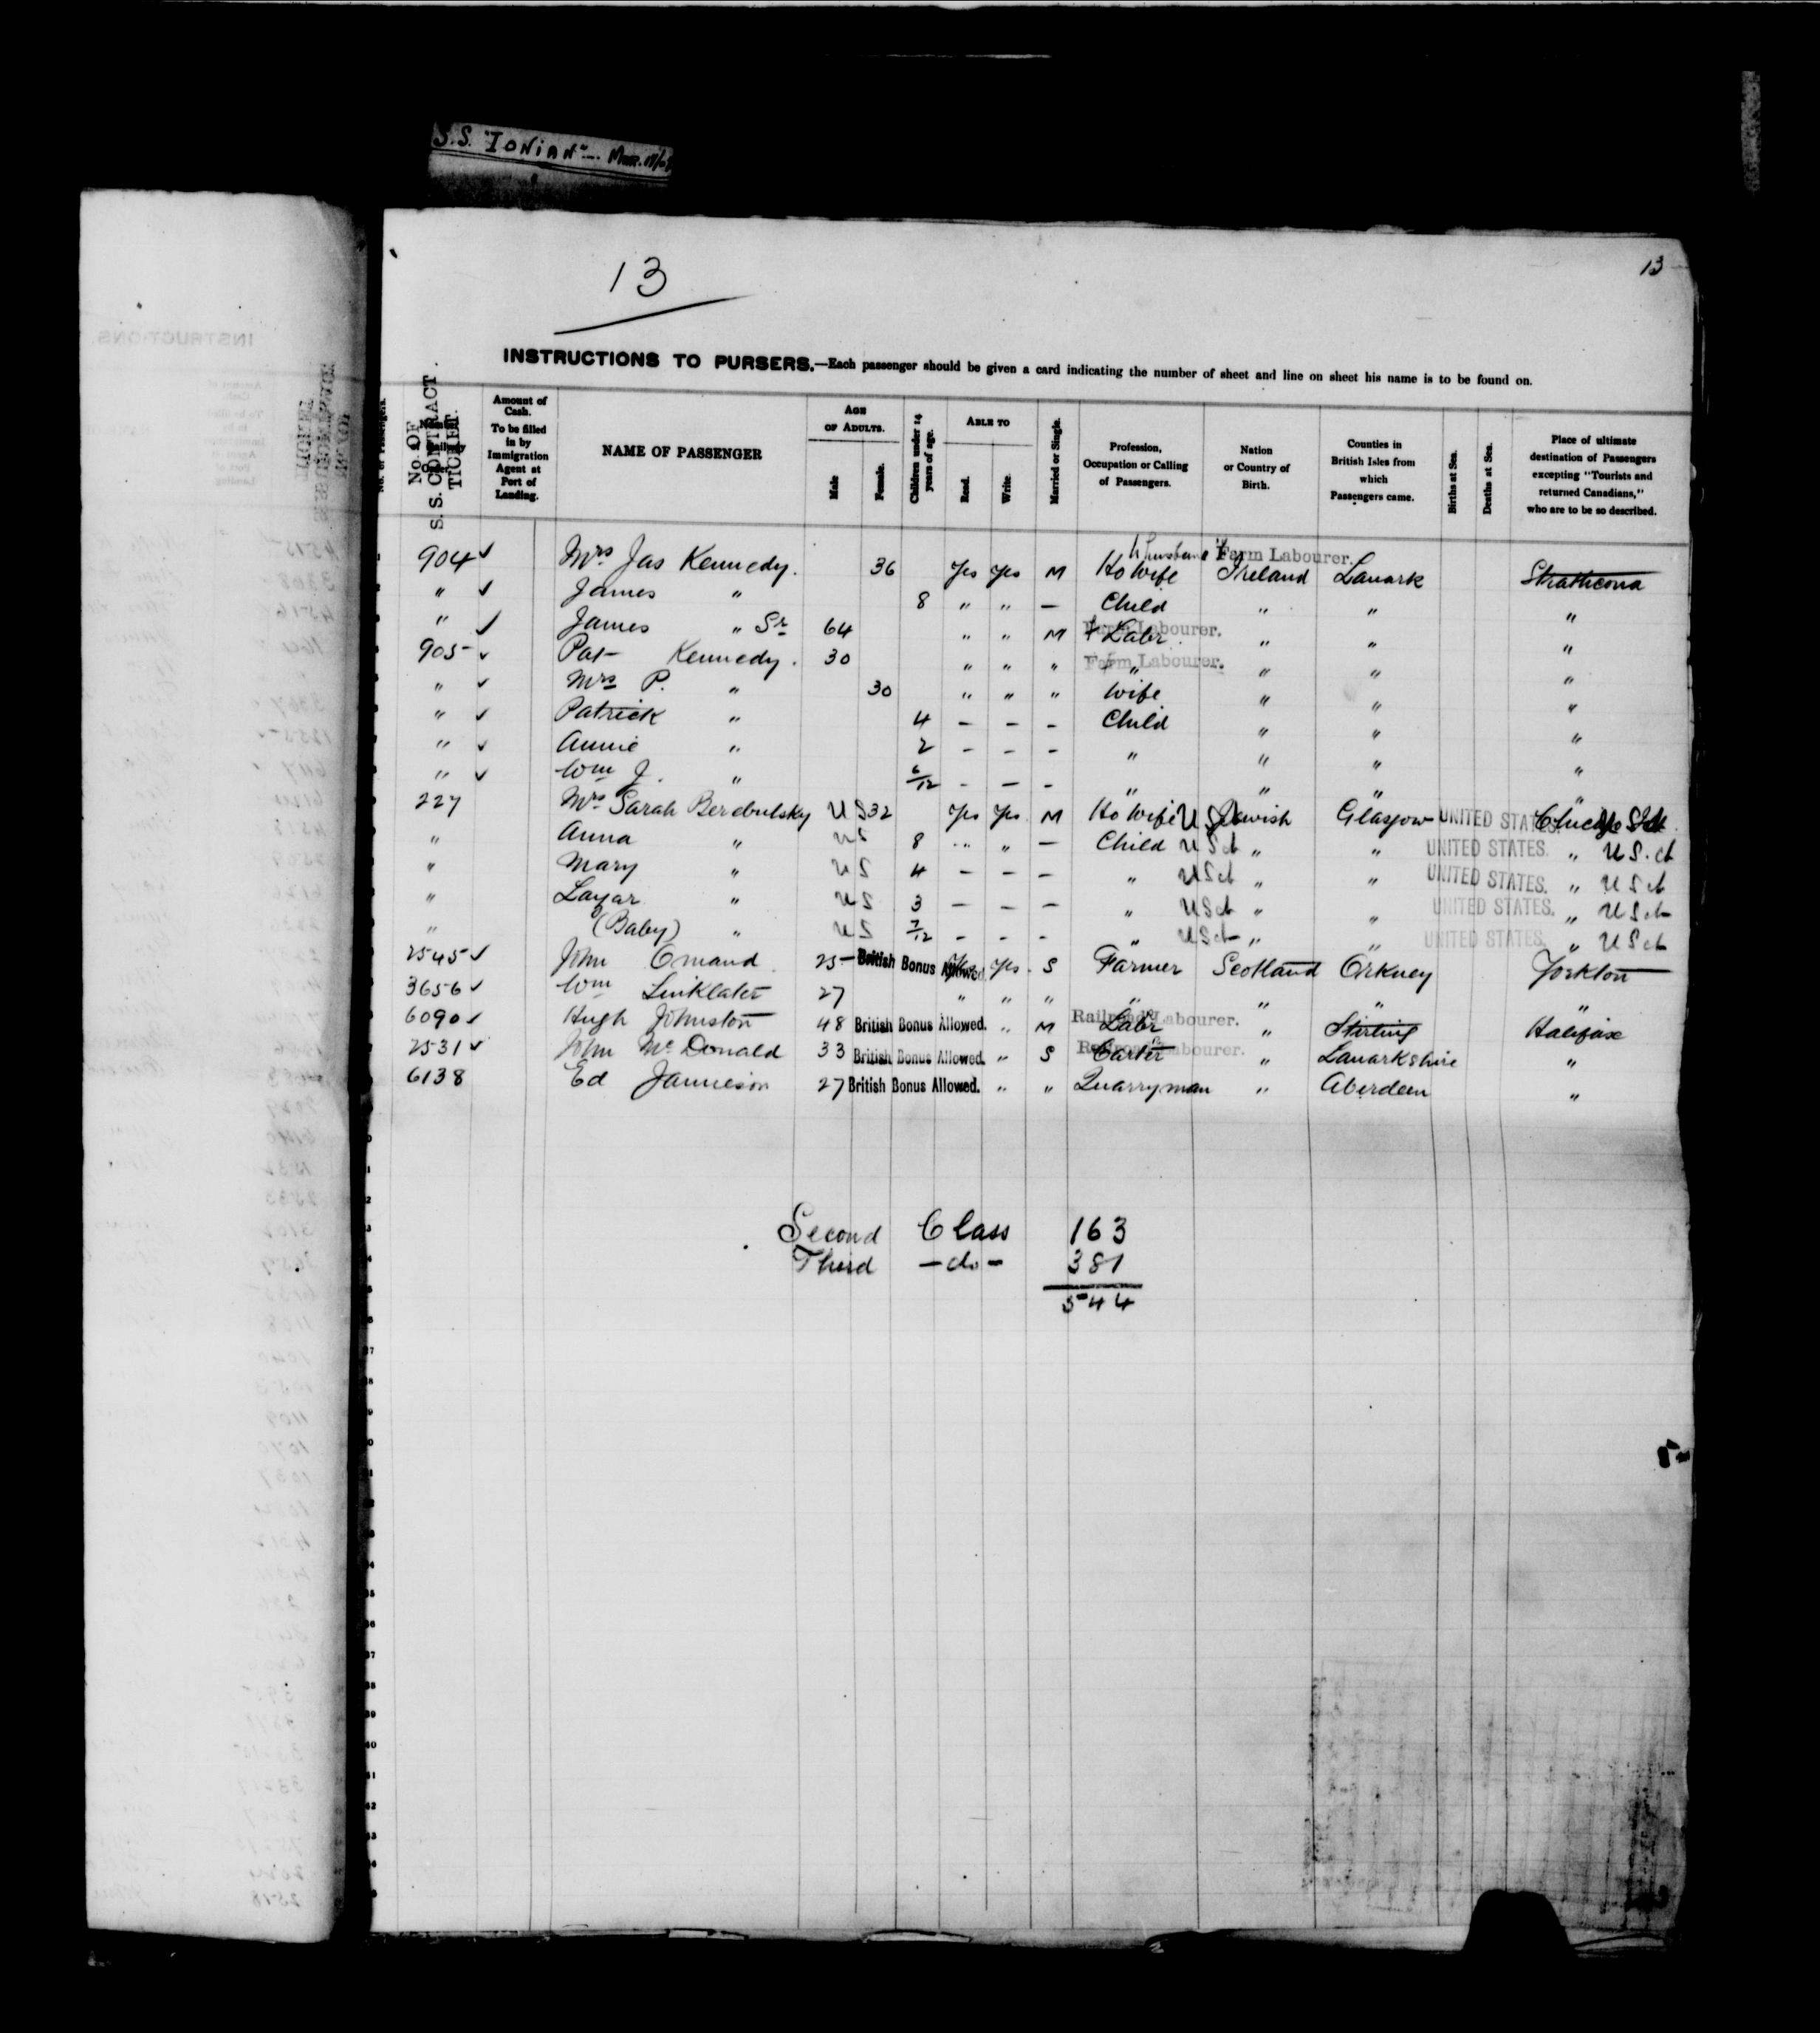 S.S. "IONIAN" Mar.
13
13
INSTRUCTIONS TO PURSERS.—Each passenger should be given a card indicating the number of sheet and line on sheet his name is to be found on.
No. of Passengers. No. OF S. S. CONTRACT TICKET. Amount of Cash. To be filled in by Immigration Agent at Port of Landing. NAME OF PASSENGER AGE OF ADULTS. Male Female. Children under 14 years of age. ABLE TO Read. Write. Married or Single. Profession, Occupation or Calling of Passengers. Nation or Country of Birth. Counties in British Isles from which Passengers came. Births at Sea. Deaths at Sea. Place of ultimate destination of Passengers excepting "Tourists and returned Canadians," who are to be so described.
Farm Labourer.
904 ✓ Mrs Jas Kennedy. 36 Yes Yes M Ho Wife Ireland Lanark Strathcona
" ✓ James " 8 " " — Child " " "
" ✓ James " Sr 64 " " M Labr Farm Labourer. " " "
905 ✓ Pat Kennedy. 30 " " " " Farm Labourer. " " "
" ✓ Mrs P. " 30 " " " Wife " " "
" ✓ Patrick " 4 – – – Child " " "
" ✓ Annie " 2 – – – " " " "
" ✓ Wm J. " 6/12 – – – " " " "
227 Mrs Sarah Berebulsky U S 32 Yes Yes M Ho Wife U S Jewish Glasgow UNITED STATES. Chicago
" Anna " U S 8 " " — Child U S ct " " UNITED STATES. " U S. ct
" Mary " U S 4 – – – " U S ct " " UNITED STATES. " U S ct
" Layar " U S 3 – – – " U S ct " " UNITED STATES. " U S ct
" (Baby) " U S 7/12 – – – " U S ct " " UNITED STATES. " U S ct
2545 ✓ John Omand 25 British Bonus Allowed. Yes Yes. S Farmer Scotland Orkney Yorkton
3656 ✓ Wm Linklater 27 " " " " " " "
6090 ✓ Hugh Johnston 48 British Bonus Allowed. " M Labr Railroad Labourer. " Stirling Halifax
2531 ✓ John McDonald 33 British Bonus Allowed. " S Carter Railroad Labourer. " Lanarkshire "
6138 Ed Jamieson 27 British Bonus Allowed. " " Quarryman " Aberdeen "
Second Class 163
Third —do— 381
544